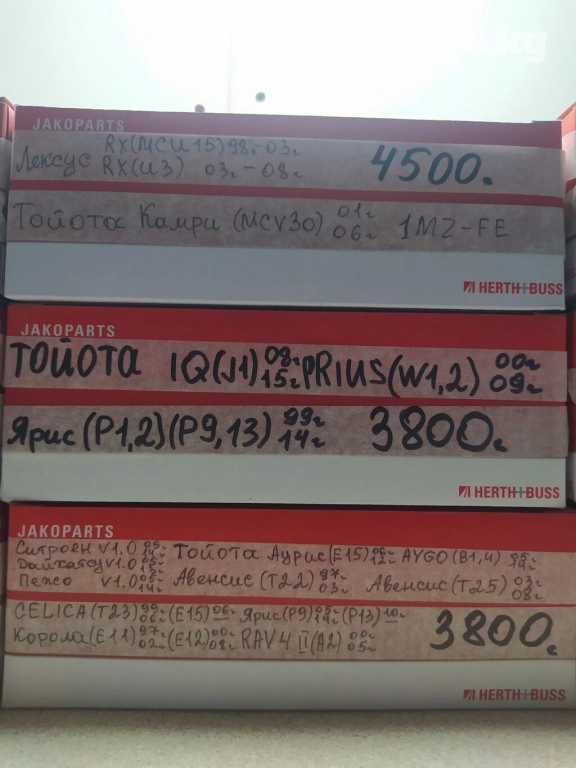 .kg
JAKOPARTS
Лексус RX(MCU15) 98г.-03г.
RX(U3) 03г-08г
4500.
Тойота Камри (MCV30) 01г 06г 1MZ-FE
HERTH+BUSS
JAKOPARTS
ТОЙОТА IQ(J1) 08г 15г PRIUS(W1,2) 00г 09г
Ярис (P1,2)(P9,13) 99г 14г 3800г
HERTH+BUSS
JAKOPARTS
Ситроен V1.0 05г 14г Тойота Аурис(E15) 06г 12г AYGO(B1,4) 05г 14г
Дайхатсу V1.0 05г 12г
Пежо V1.0 05г 14г Авенсис(T22) 97г 03г Авенсис(T25) 03г 08г
CELICA(T23) 99г 06г (E15) 06г Ярис(P9) 05г 14г (P13) 10г
Корола(E11) 97г 02г (E12) 00г 08г RAV4 II(A2) 00г 05г
3800с
HERTH+BUSS